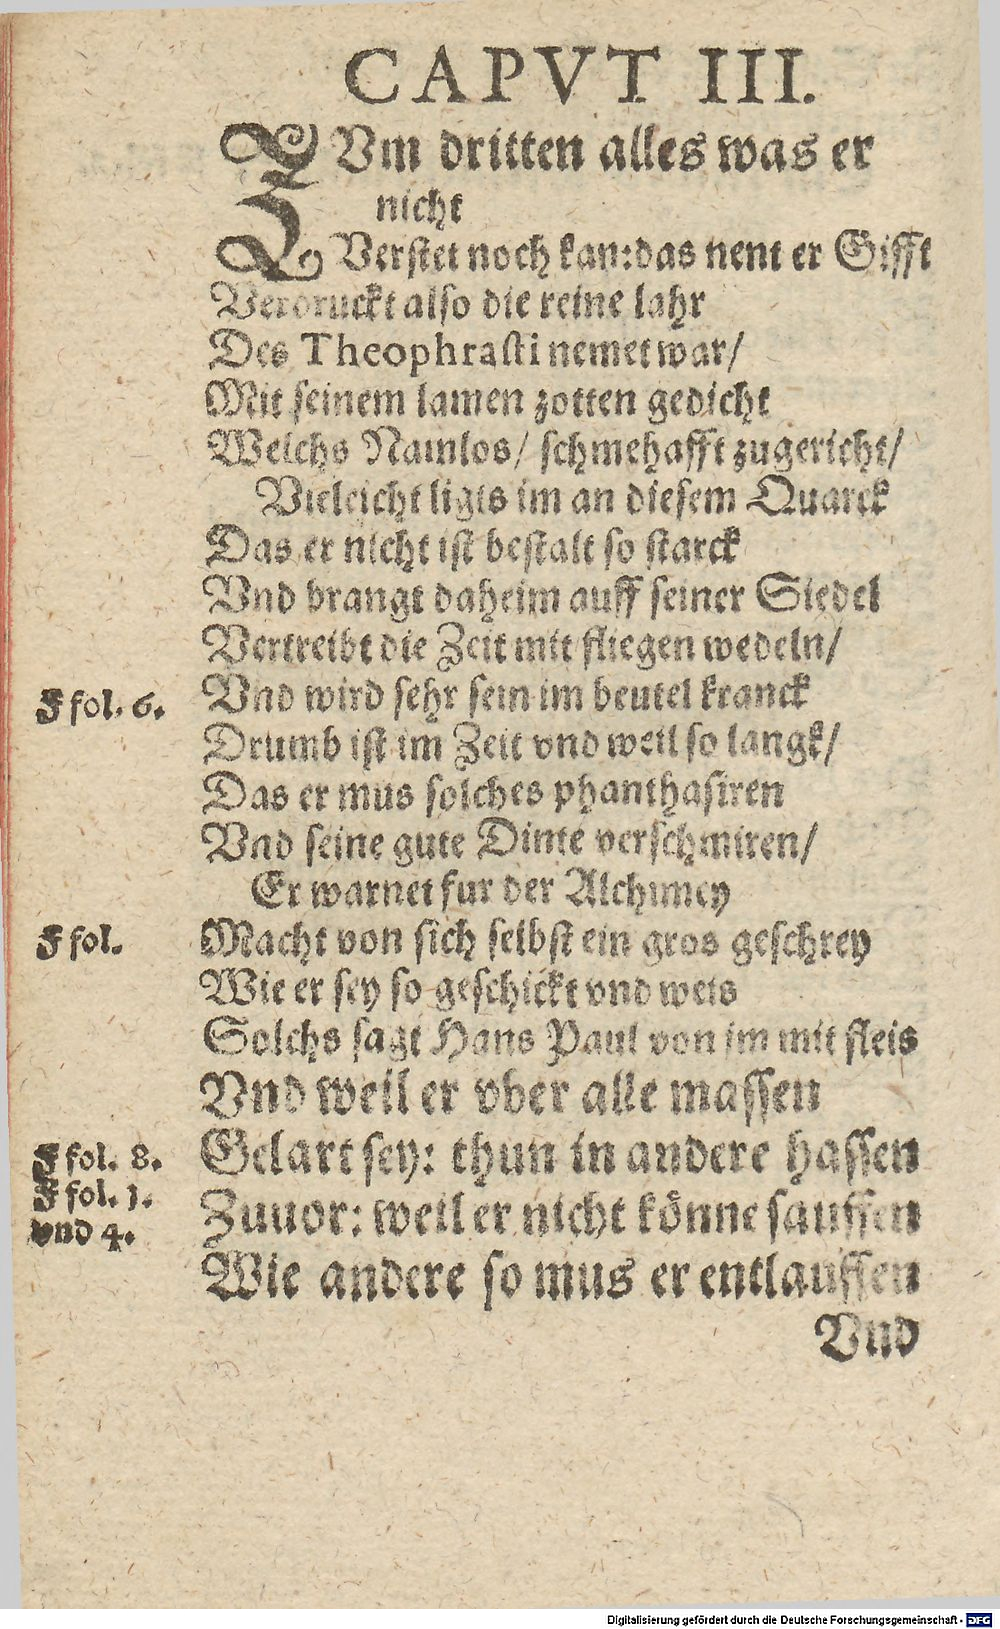 CAPVT III.
ZVm dritten alles was er
nicht
Verstet noch kan:das nent er Gifft
Verdruckt also die reine lahr
Des Theophrasti nemet war/
Mit seinem lamen zotten gedicht
Welchs Namlos/ schmehafft zugericht/
Vieleicht ligts im an diesem Quarck
Das er nicht ist bestalt so starck
Vnd brangt daheim auff seiner Siedel
Vertreibt die Zeit mit fliegen wedeln/
F fol. 6. Vnd wird sehr sein im beutel kranck
Drumb ist im Zeit vnd weil so langk/
Das er mus solches phanthasiren
Vnd seine gute Dinte verschmiren/
Er warnet fur der Alchimey
F fol. Macht von sich selbst ein gros geschrey
Wie er sey so geschickt vnd weis
Solchs sagt Hans Paul von im mit fleis
Vnd weil er vber alle massen
F fol. 8. Gelart sey: thun in andere hassen
F fol. 1.
Zuuor: weil er nicht könne sauffen
vnd 4.
Wie andere so mus er entlauffen
Vnd
Digitalisierung gefördert durch die Deutsche Forschungsgemeinschaft - DFG